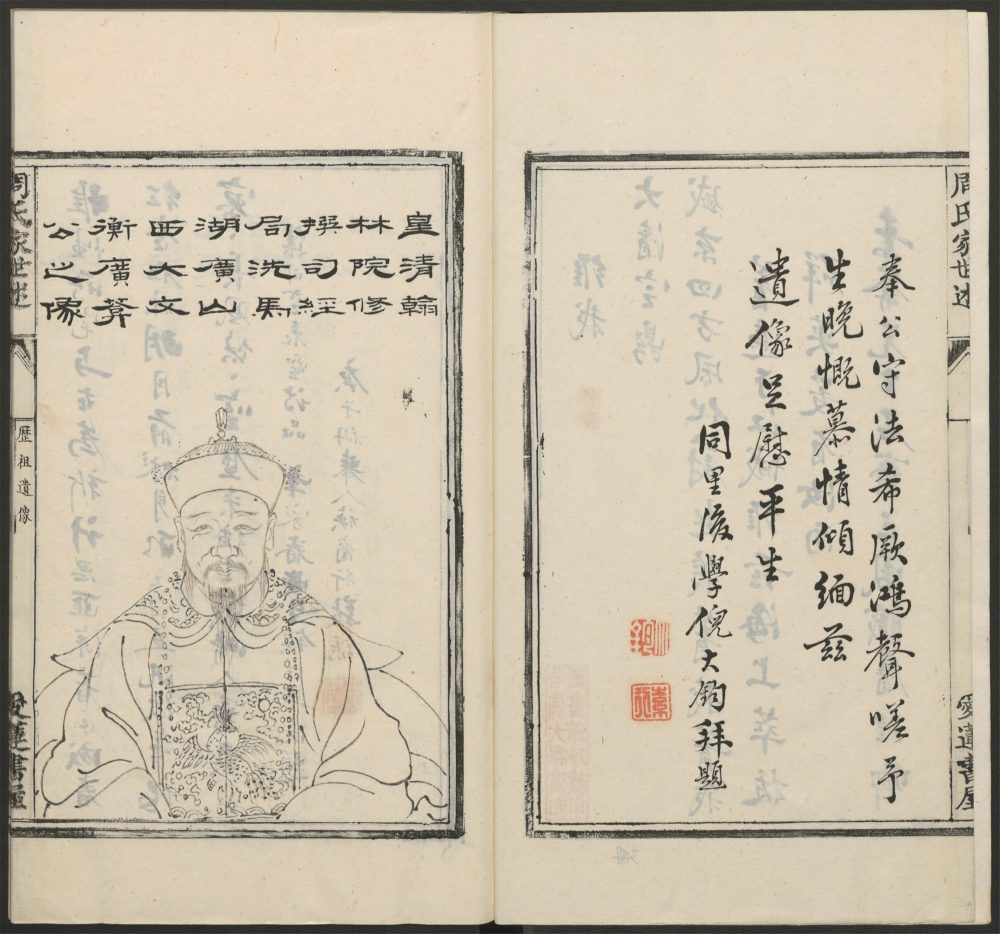 周氏家世述
愛蓮書屋
奉公守法希厥鴻聲嗟予
生晚慨慕情傾緬茲
遺像足慰平生
同里後學倪大鈞拜題
皇清翰
林院修
撰司經
局洗馬
湖廣山
西大文
衡廣葊
公之像
周氏家世述
歷祖遺像
愛蓮書屋